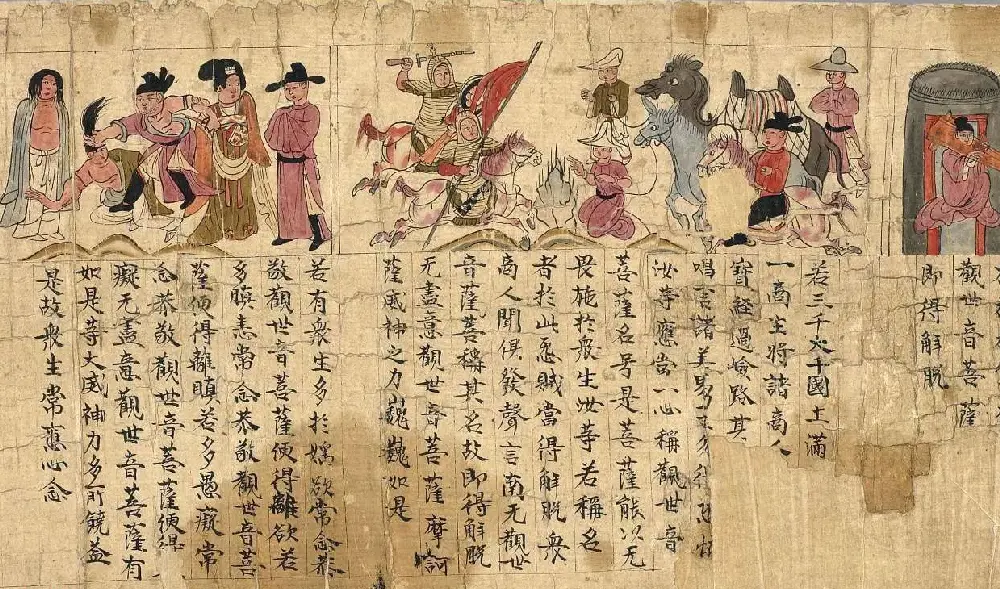 觀世音菩薩
即得解脫
若三千大千國土滿
一商主將諸商人
寶經過嶮路其
唱言諸善男
汝等應當一心稱觀世音
菩薩名号是菩薩能以无
畏施於衆生汝等若稱名
者於此怨賊當得解脫衆
商人聞俱發聲言南无觀世
音薩菩稱其名故即得解脫
无盡意觀世音菩薩摩訶
薩威神之力巍巍如是
若有衆生多於婬欲常念恭
敬觀世音菩薩便得離欲若
多瞋恚常念恭敬觀世音菩
薩便得離瞋若多愚癡常
念恭敬觀世音菩薩便得
癡无盡意觀世音菩薩有
如是等大威神力多所饒益
是故衆生常應心念